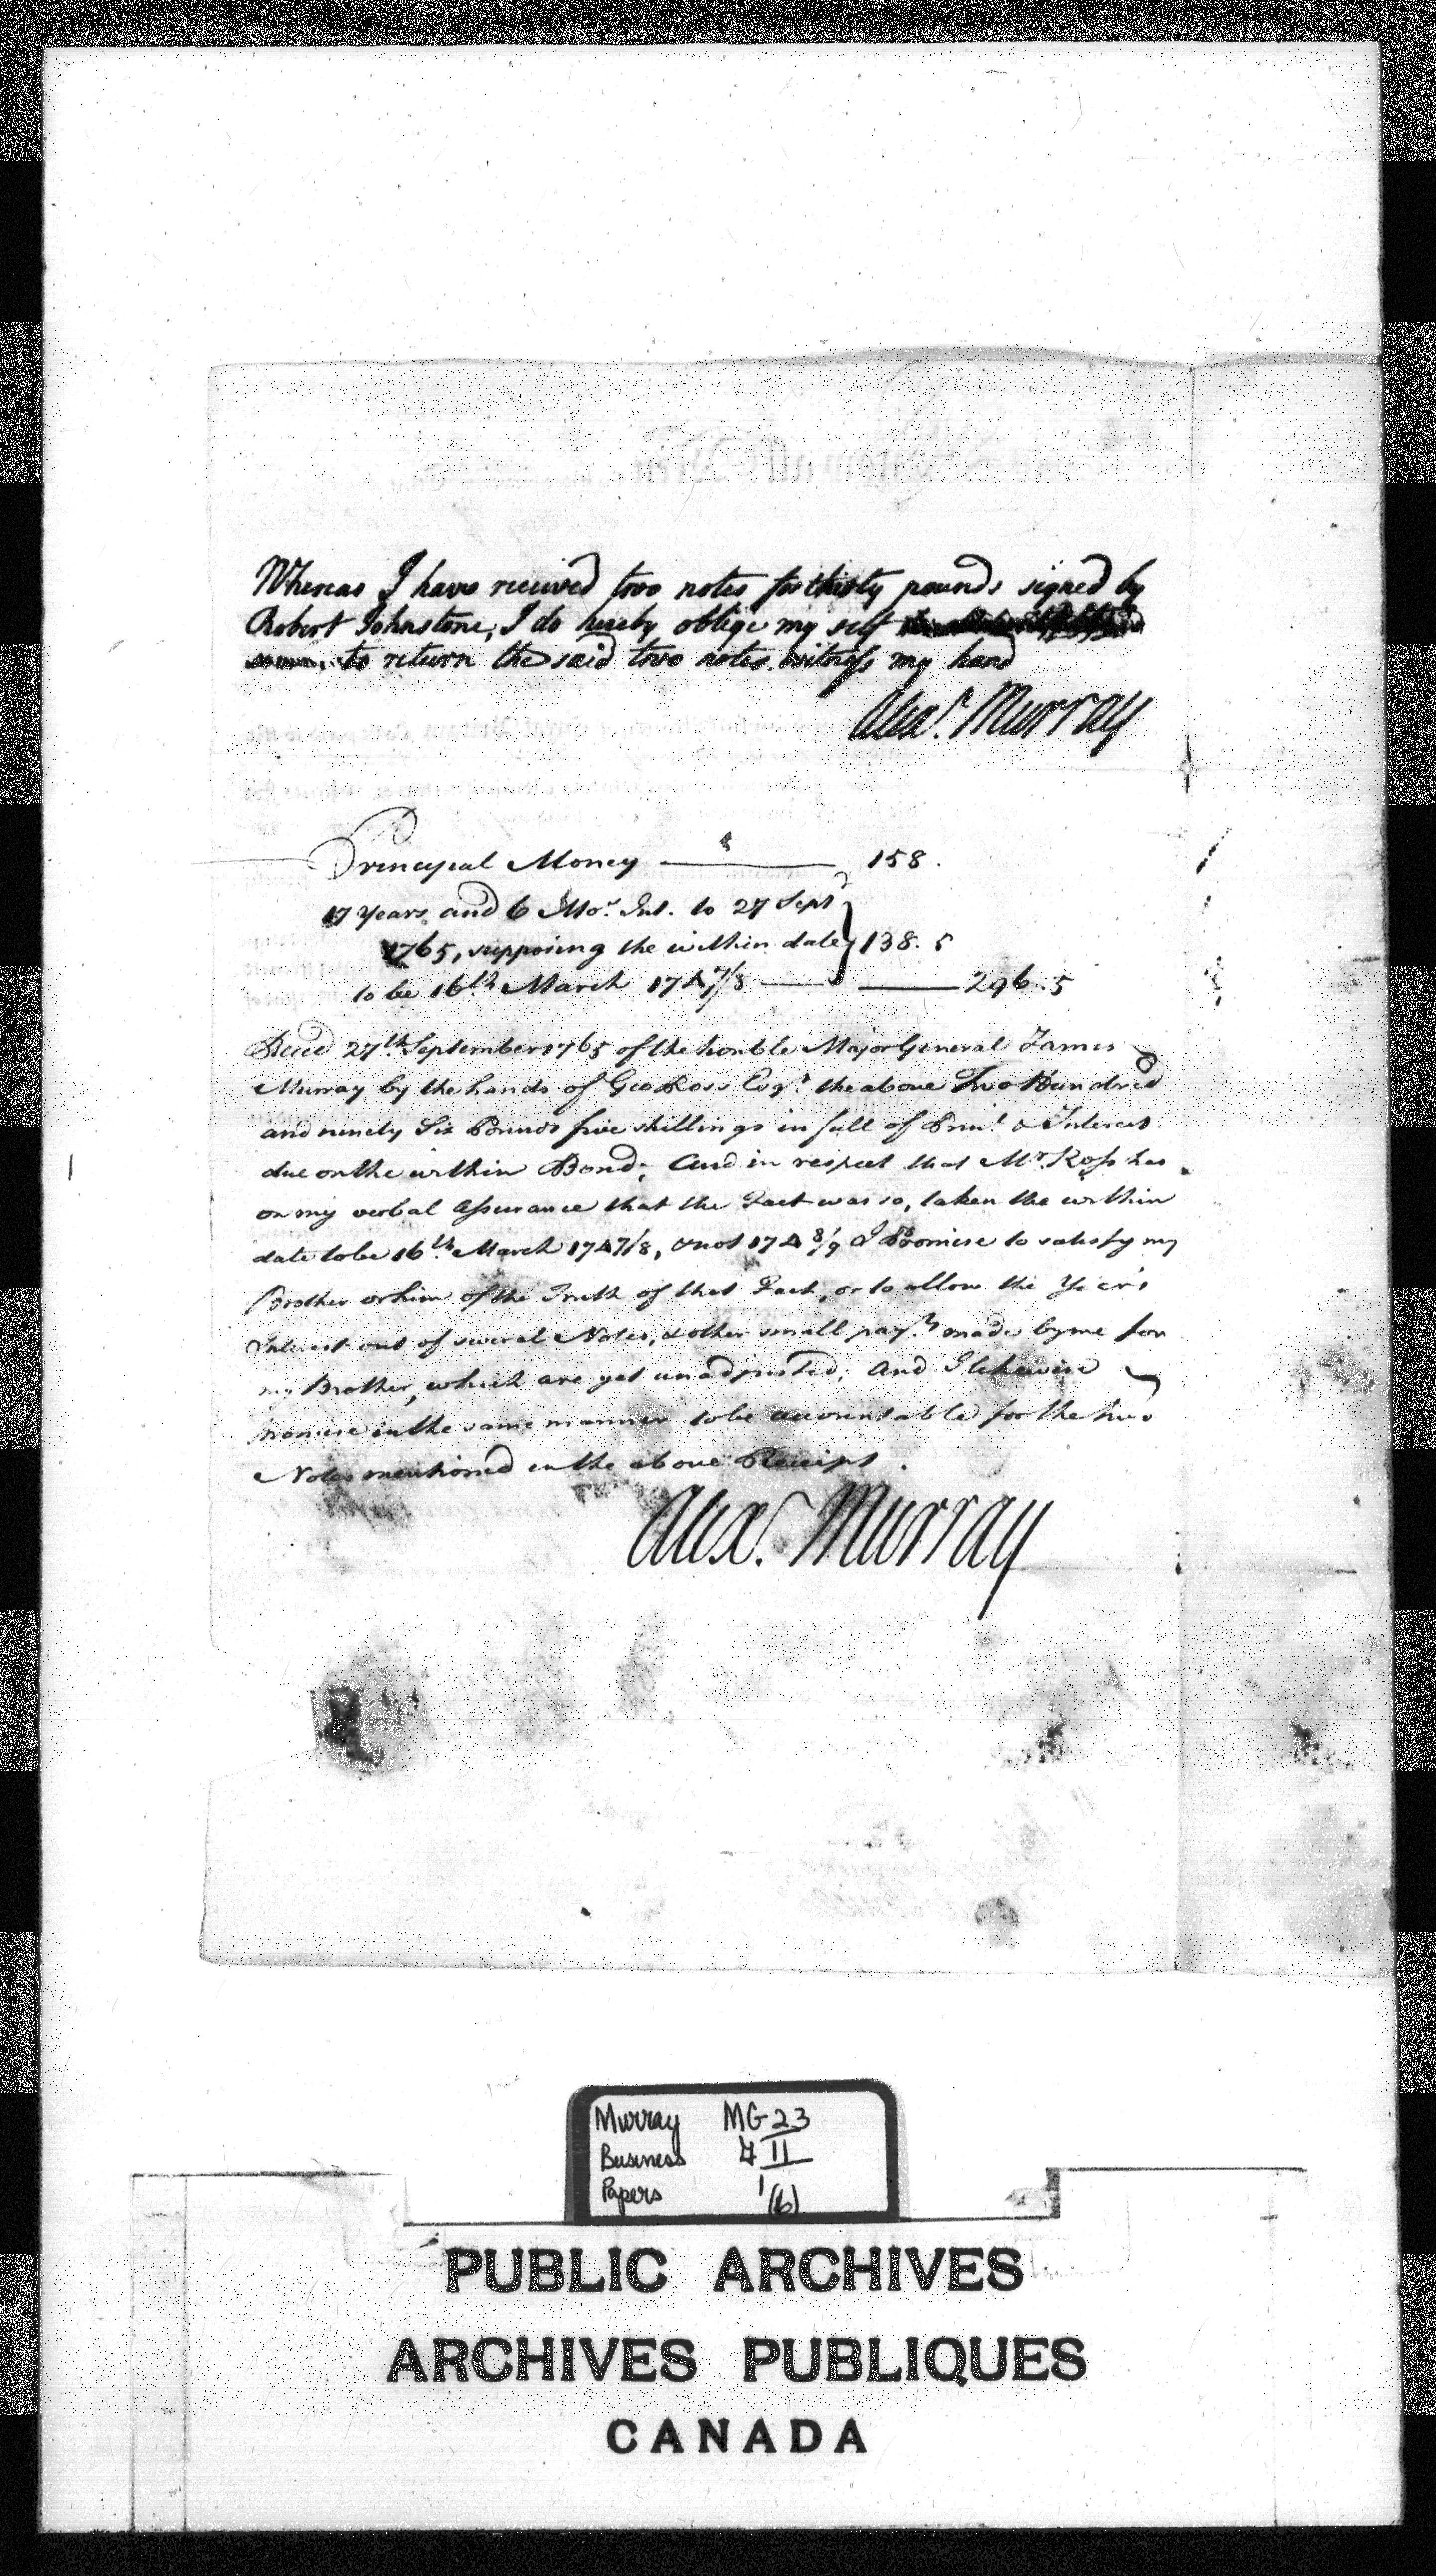 Whereas I have received two notes for thirty pounds signed by
Robert Johnstone, I do hereby oblige my self
to return the said two notes. witness my hand
Alexr. Murray
Principal Money 158.
17 Years and 6 Mos. Int. to 27 Sept
1765, supposing the within date 138. 5
to be 16th. March 174 7/8 296. 5
Recd 27th. September 1765 of the honble Major General James
Murray by the hands of Geo Ross Esqr. the above Two Hundred
and ninety Six Pounds five shillings in full of Prinl. & Interest
due on the within Bond; And in respect that Mr. Ross has
on my verbal Assurance that the Fact was so, taken the within
date to be 16th March 174 7/8, & not 174 8/9 I Promise to satisfy my
Brother or him of the Truth of that Fact, or to allow the Year's
Interest out of several Notes, & other small payts. made by me for
my Brother, which are yet unadjusted; And I likewise
promise in the same manner to be accountable for the two
Notes mentioned in the above Receipt.
Alexr. Murray
Murray MG 23
Business 4 II
Papers 1(6)
PUBLIC ARCHIVES
ARCHIVES PUBLIQUES
CANADA